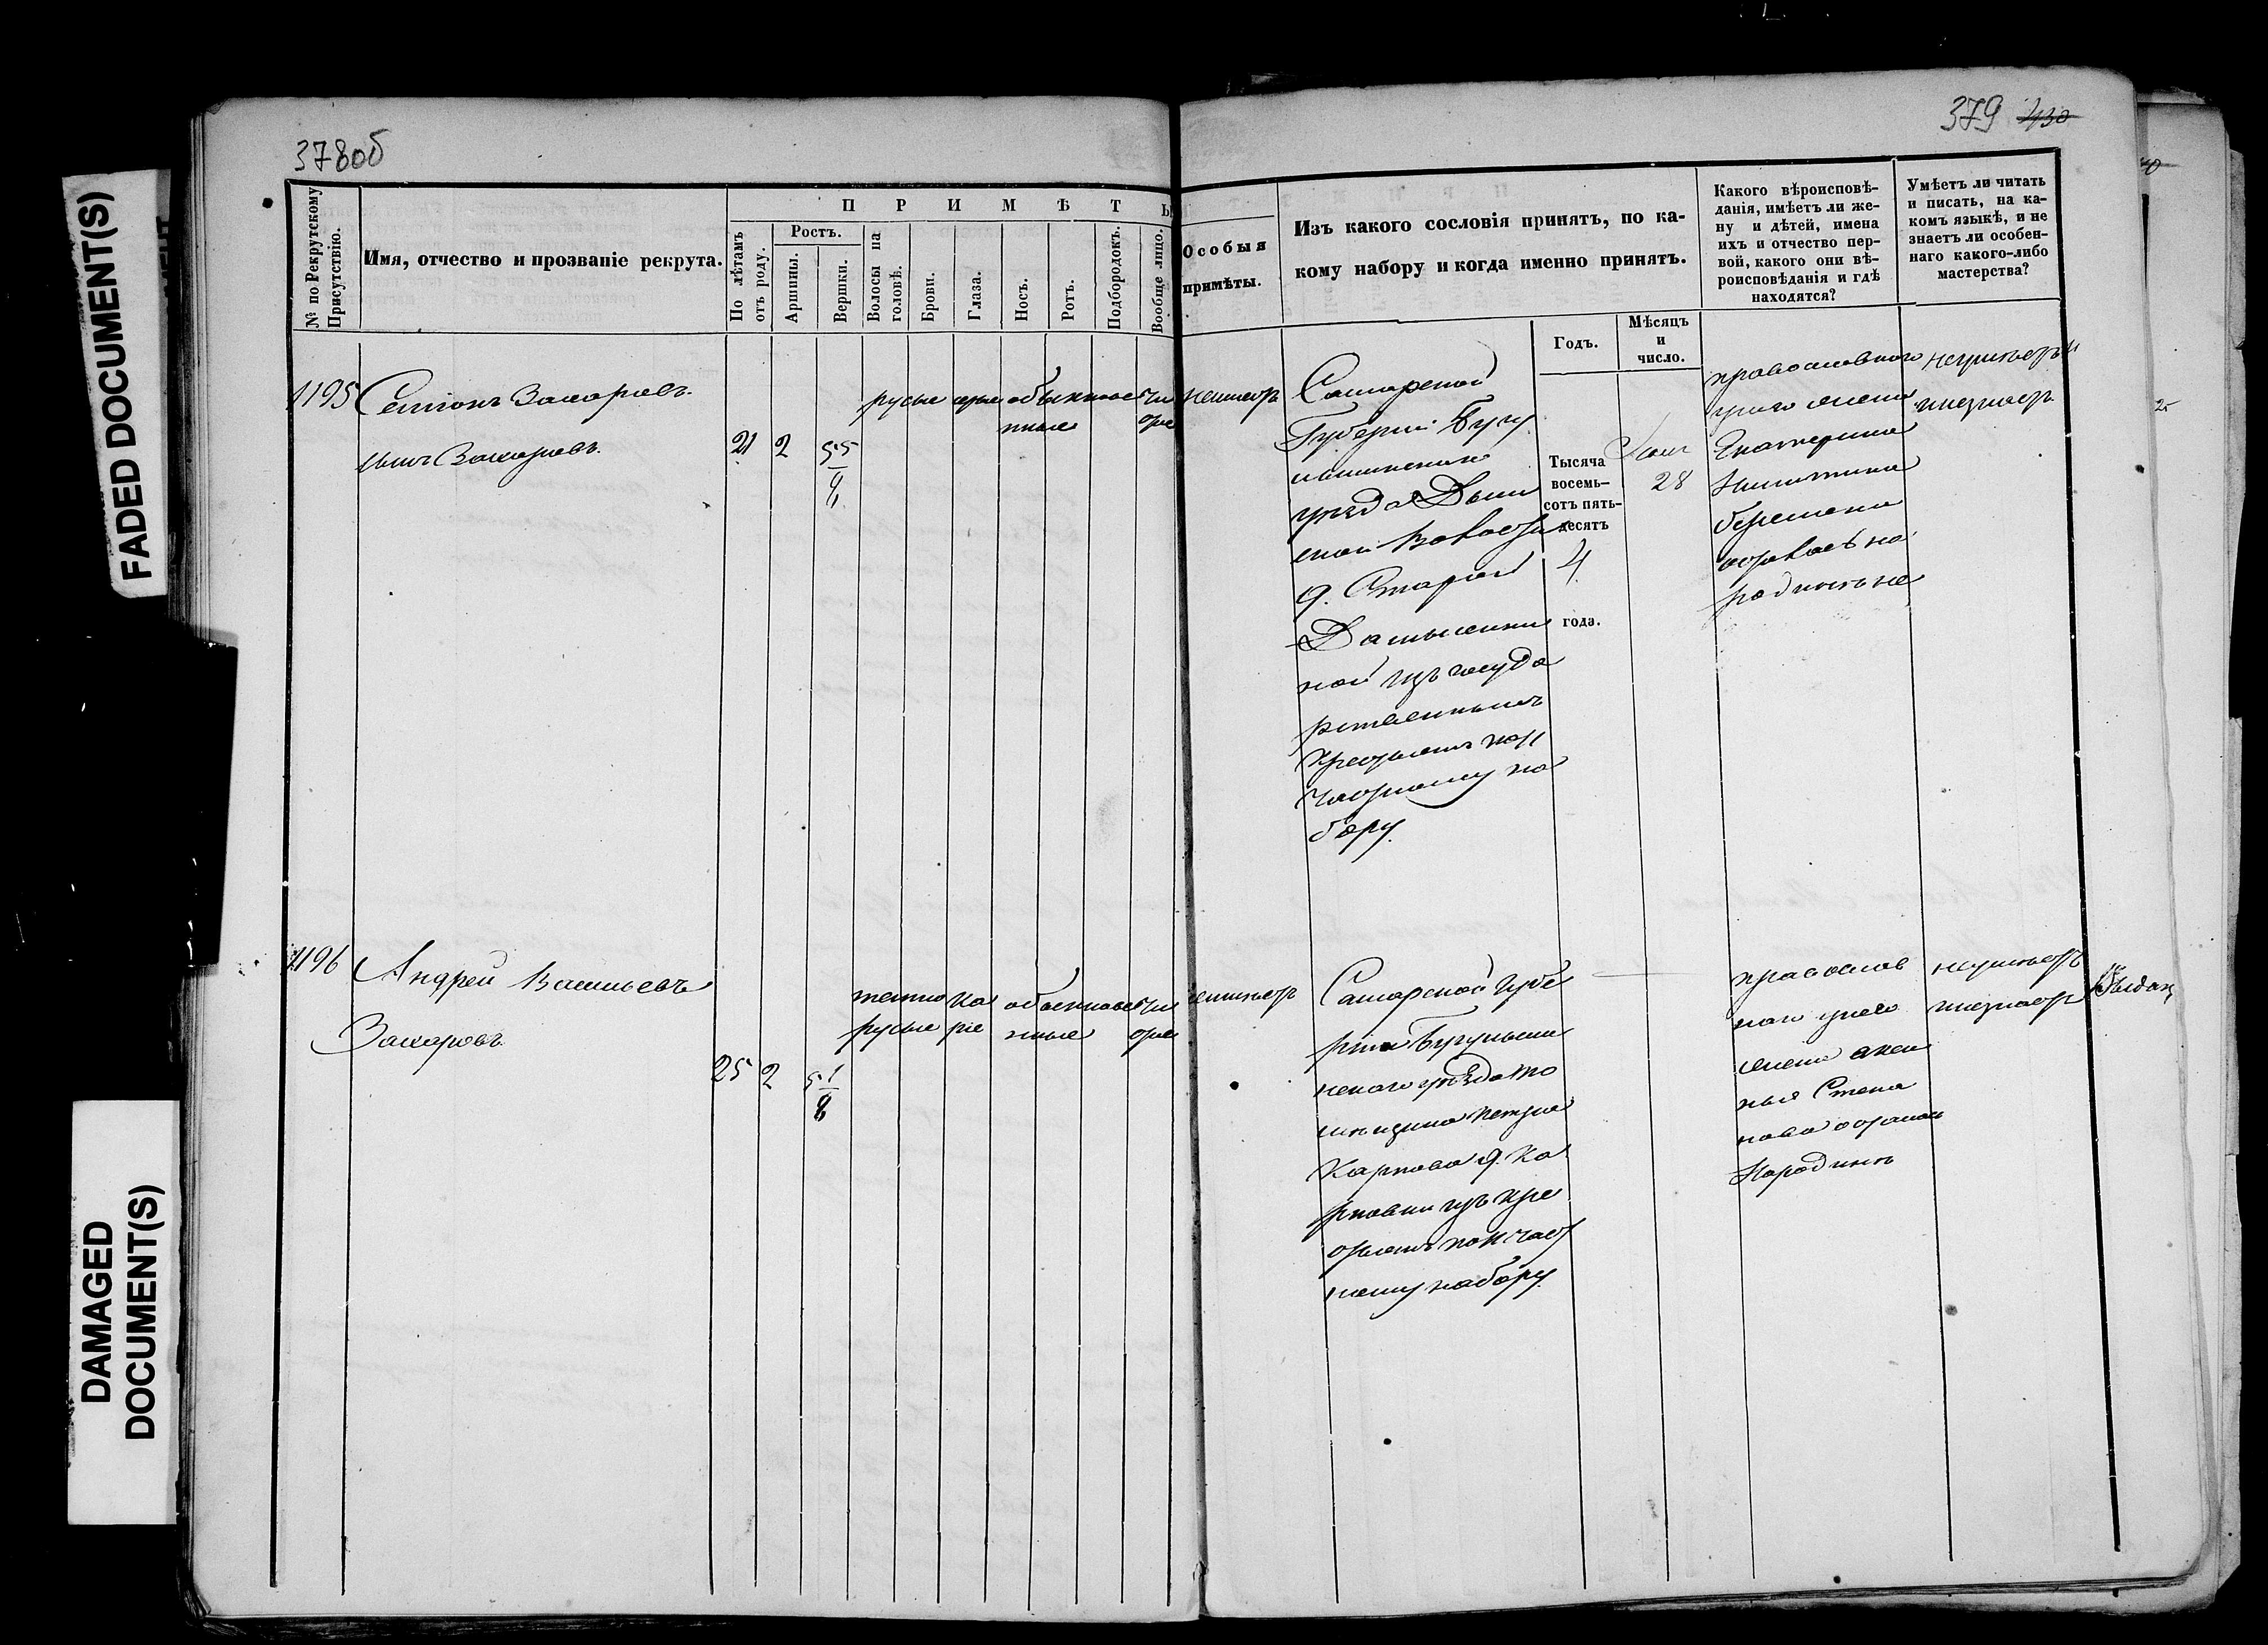 378об
379 430
FADED DOCUMENT(S)
DAMAGED
DOCUMENT(S)
№ по Рекрутскому
Присутствію.
Имя, отчество и прозваніе рекрута.
П Р И М Ѣ Т Ы
По лѣтамъ
отъ роду.
Ростъ.
Аршины.
Вершки.
Волосы на
головѣ.
Брови.
Глаза.
Носъ.
Ротъ.
Подбородокъ.
Вообще лицо.
Особыя
примѣты.
Изъ какого сословія принятъ, по ка-
кому набору и когда именно принятъ.
Годъ.
Мѣсяцъ
и
число.
Какого вѣроисповѣ-
данія, имѣетъ ли же-
ну и дѣтей, имена
ихъ и отчество пер-
вой, какого они вѣ-
роисповѣданія и гдѣ
находятся?
Умѣетъ ли читать
и писать, на ка-
комъ языкѣ, и не
знаетъ ли особен-
наго какого-либо
мастерства?
1195
Семіонъ Захаровъ
Захаровъ
21
2
5 5/8
русые
серые
обыкнове
нные
чи
стое
неимеетъ
Самарской
Губерніи Бугу
льминскаго
уезда Дым
ской Волости
д. Старой
ной изъ госуда
рственныхъ
крестьянъ по 11
частному на
бору.
Тысяча
восемь-
сотъ пять-
десятъ
4
года.
28
православного
у него жена
Екатерина
Никитина
беремена
осталась на
родине
неумеетъ и
незнаетъ
1196
Андрей Васильевъ
Захаровъ
25
2
5 1/8
темно
русые
ка
ріе
обыкнове
нные
чи
стое
неимеетъ
Самарской губе
рніи Бугульми
нскаго уезда по
мещика Петра
Карпова д. Ка
рповки изъ кре
стьянъ по 11 част
ному набору.
православ
наго у него
жена
Степа
нова осталась
на родине
неумеетъ
незнаетъ